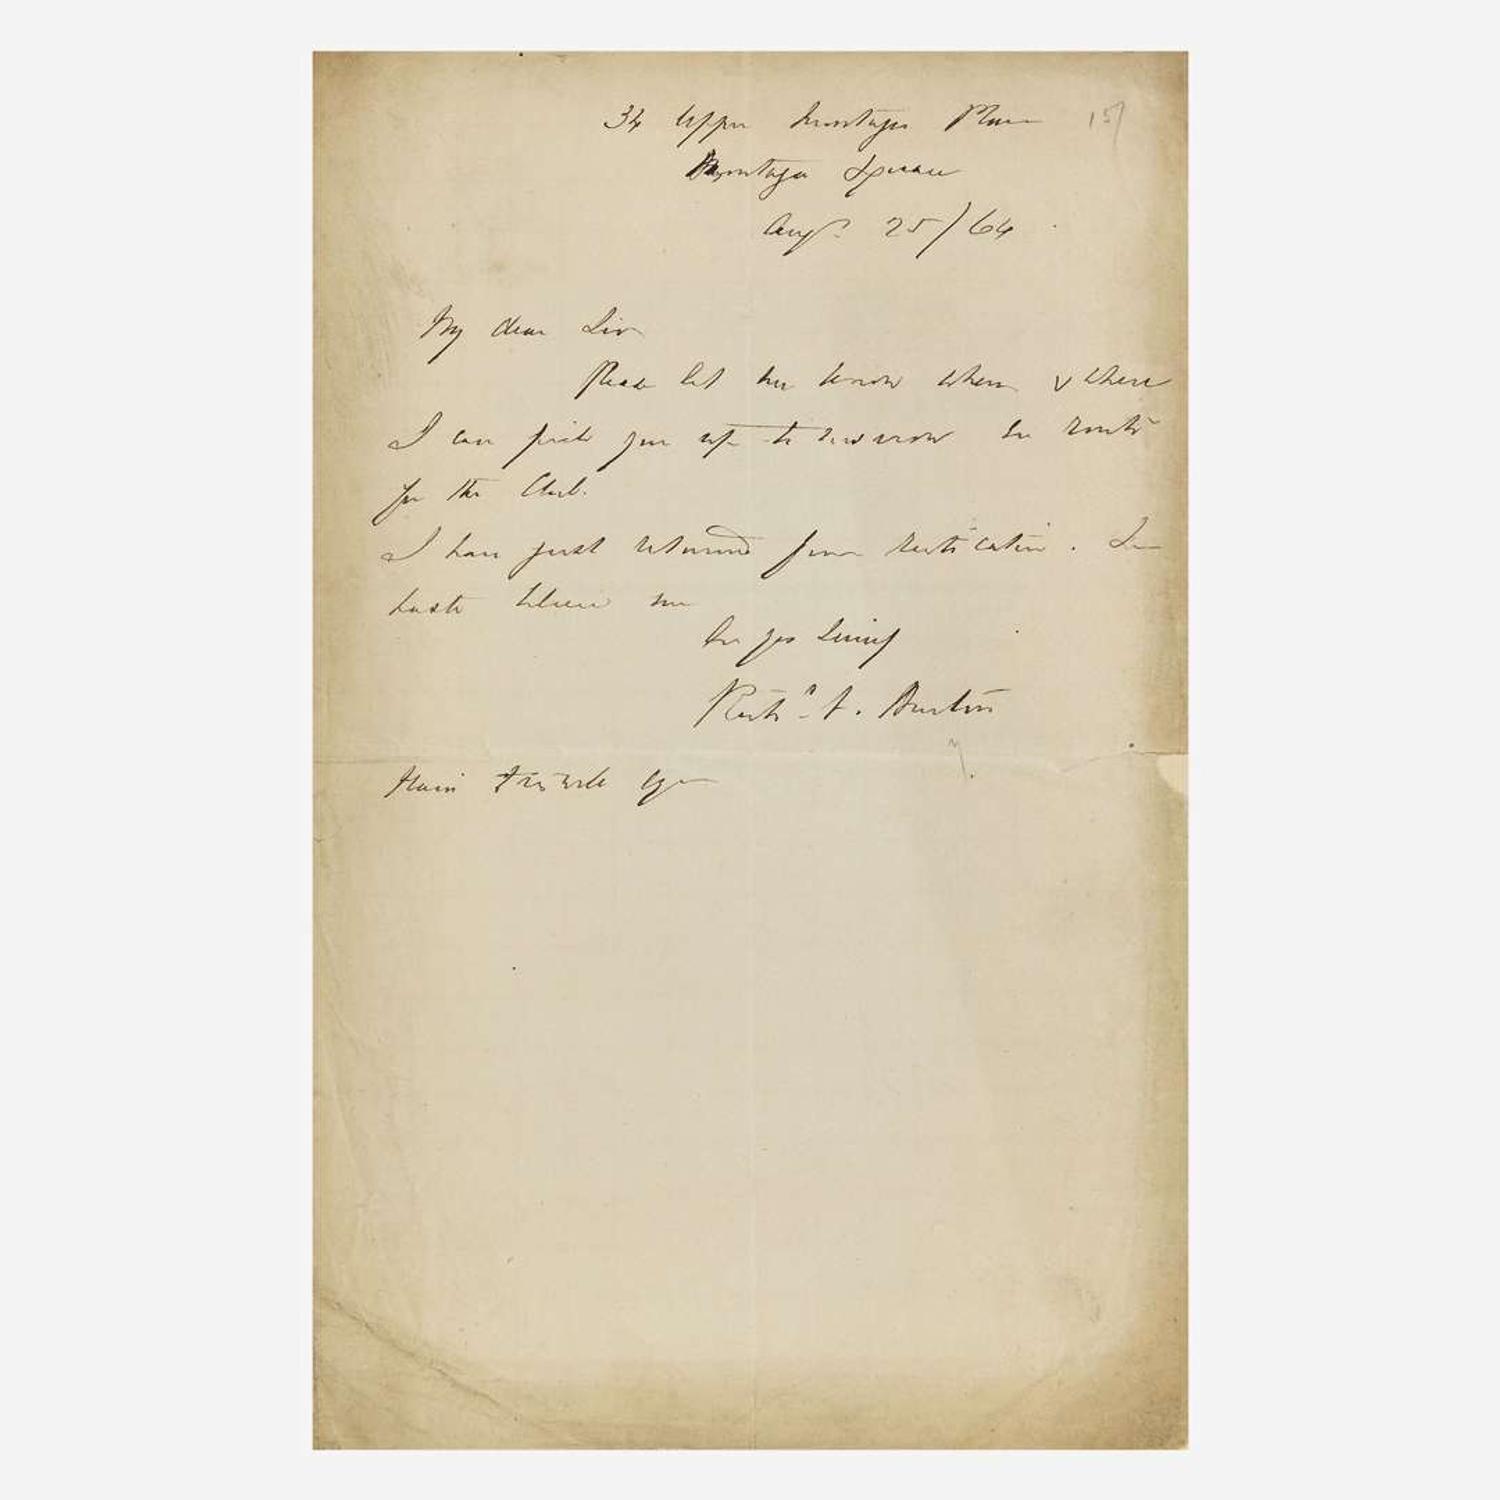 34 Upper Montagu Place 15
Montagu Square
Aug. 25/64
My dear Sir
Please let me know when & where
I can pick you up to morrow en route
for the Club.
I have just returned from rustication. In
haste believe me
Ever yrs Sincy
Richd. F. Burton
Hain Friswell Esqr